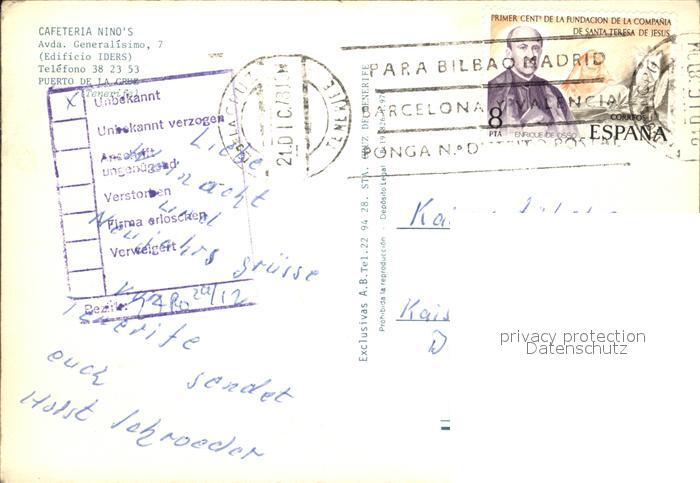 CAFETERIA NINO'S
Avda. Generalísimo, 7
(Edificio IDERS)
Teléfono 38 23 53
PUERTO DE LA CRUZ
(Tenerife)
X Unbekannt
Unbekannt verzogen
Anschrift
ungenügend
Verstorben
Firma erloschen
Verweigert
Bezirk:
Liebe
und
Neujahrs grüsse
Tenerife
euch sendet
Horst Schroeder
21.DIC.78
TENERIFE
Exclusivas A.B. Tel. 22 94 28. STA. CRUZ DE TENERIFE
Prohibida la reproducción - Depósito Legal
PRIMER CENTº DE LA FUNDACION DE LA COMPAÑIA
DE SANTA TERESA DE JESUS
8
PTA
ENRIQUE DE OSSO
CORREOS
ESPAÑA
PARA BILBAO MADRID
BARCELONA Y VALENCIA
PONGA N.º DISTRITO POSTAL
Kais
D
privacy protection
Datenschutz